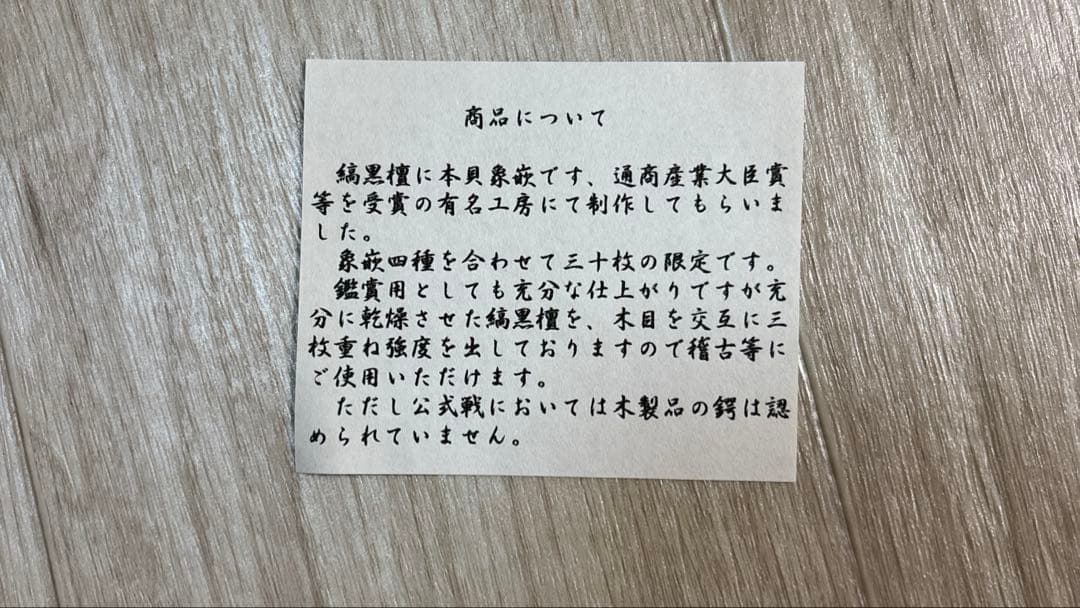 商品について
縞黒檀に本貝象嵌です、通商産業大臣賞
等を受賞の有名工房にて制作してもらいま
した。
象嵌四種を合わせて三十枚の限定です。
鑑賞用としても充分な仕上がりですが充
分に乾燥させた縞黒檀を、木目を交互に三
枚重ね強度を出しておりますので稽古等に
ご使用いただけます。
ただし公式戦においては木製品の鍔は認
められていません。